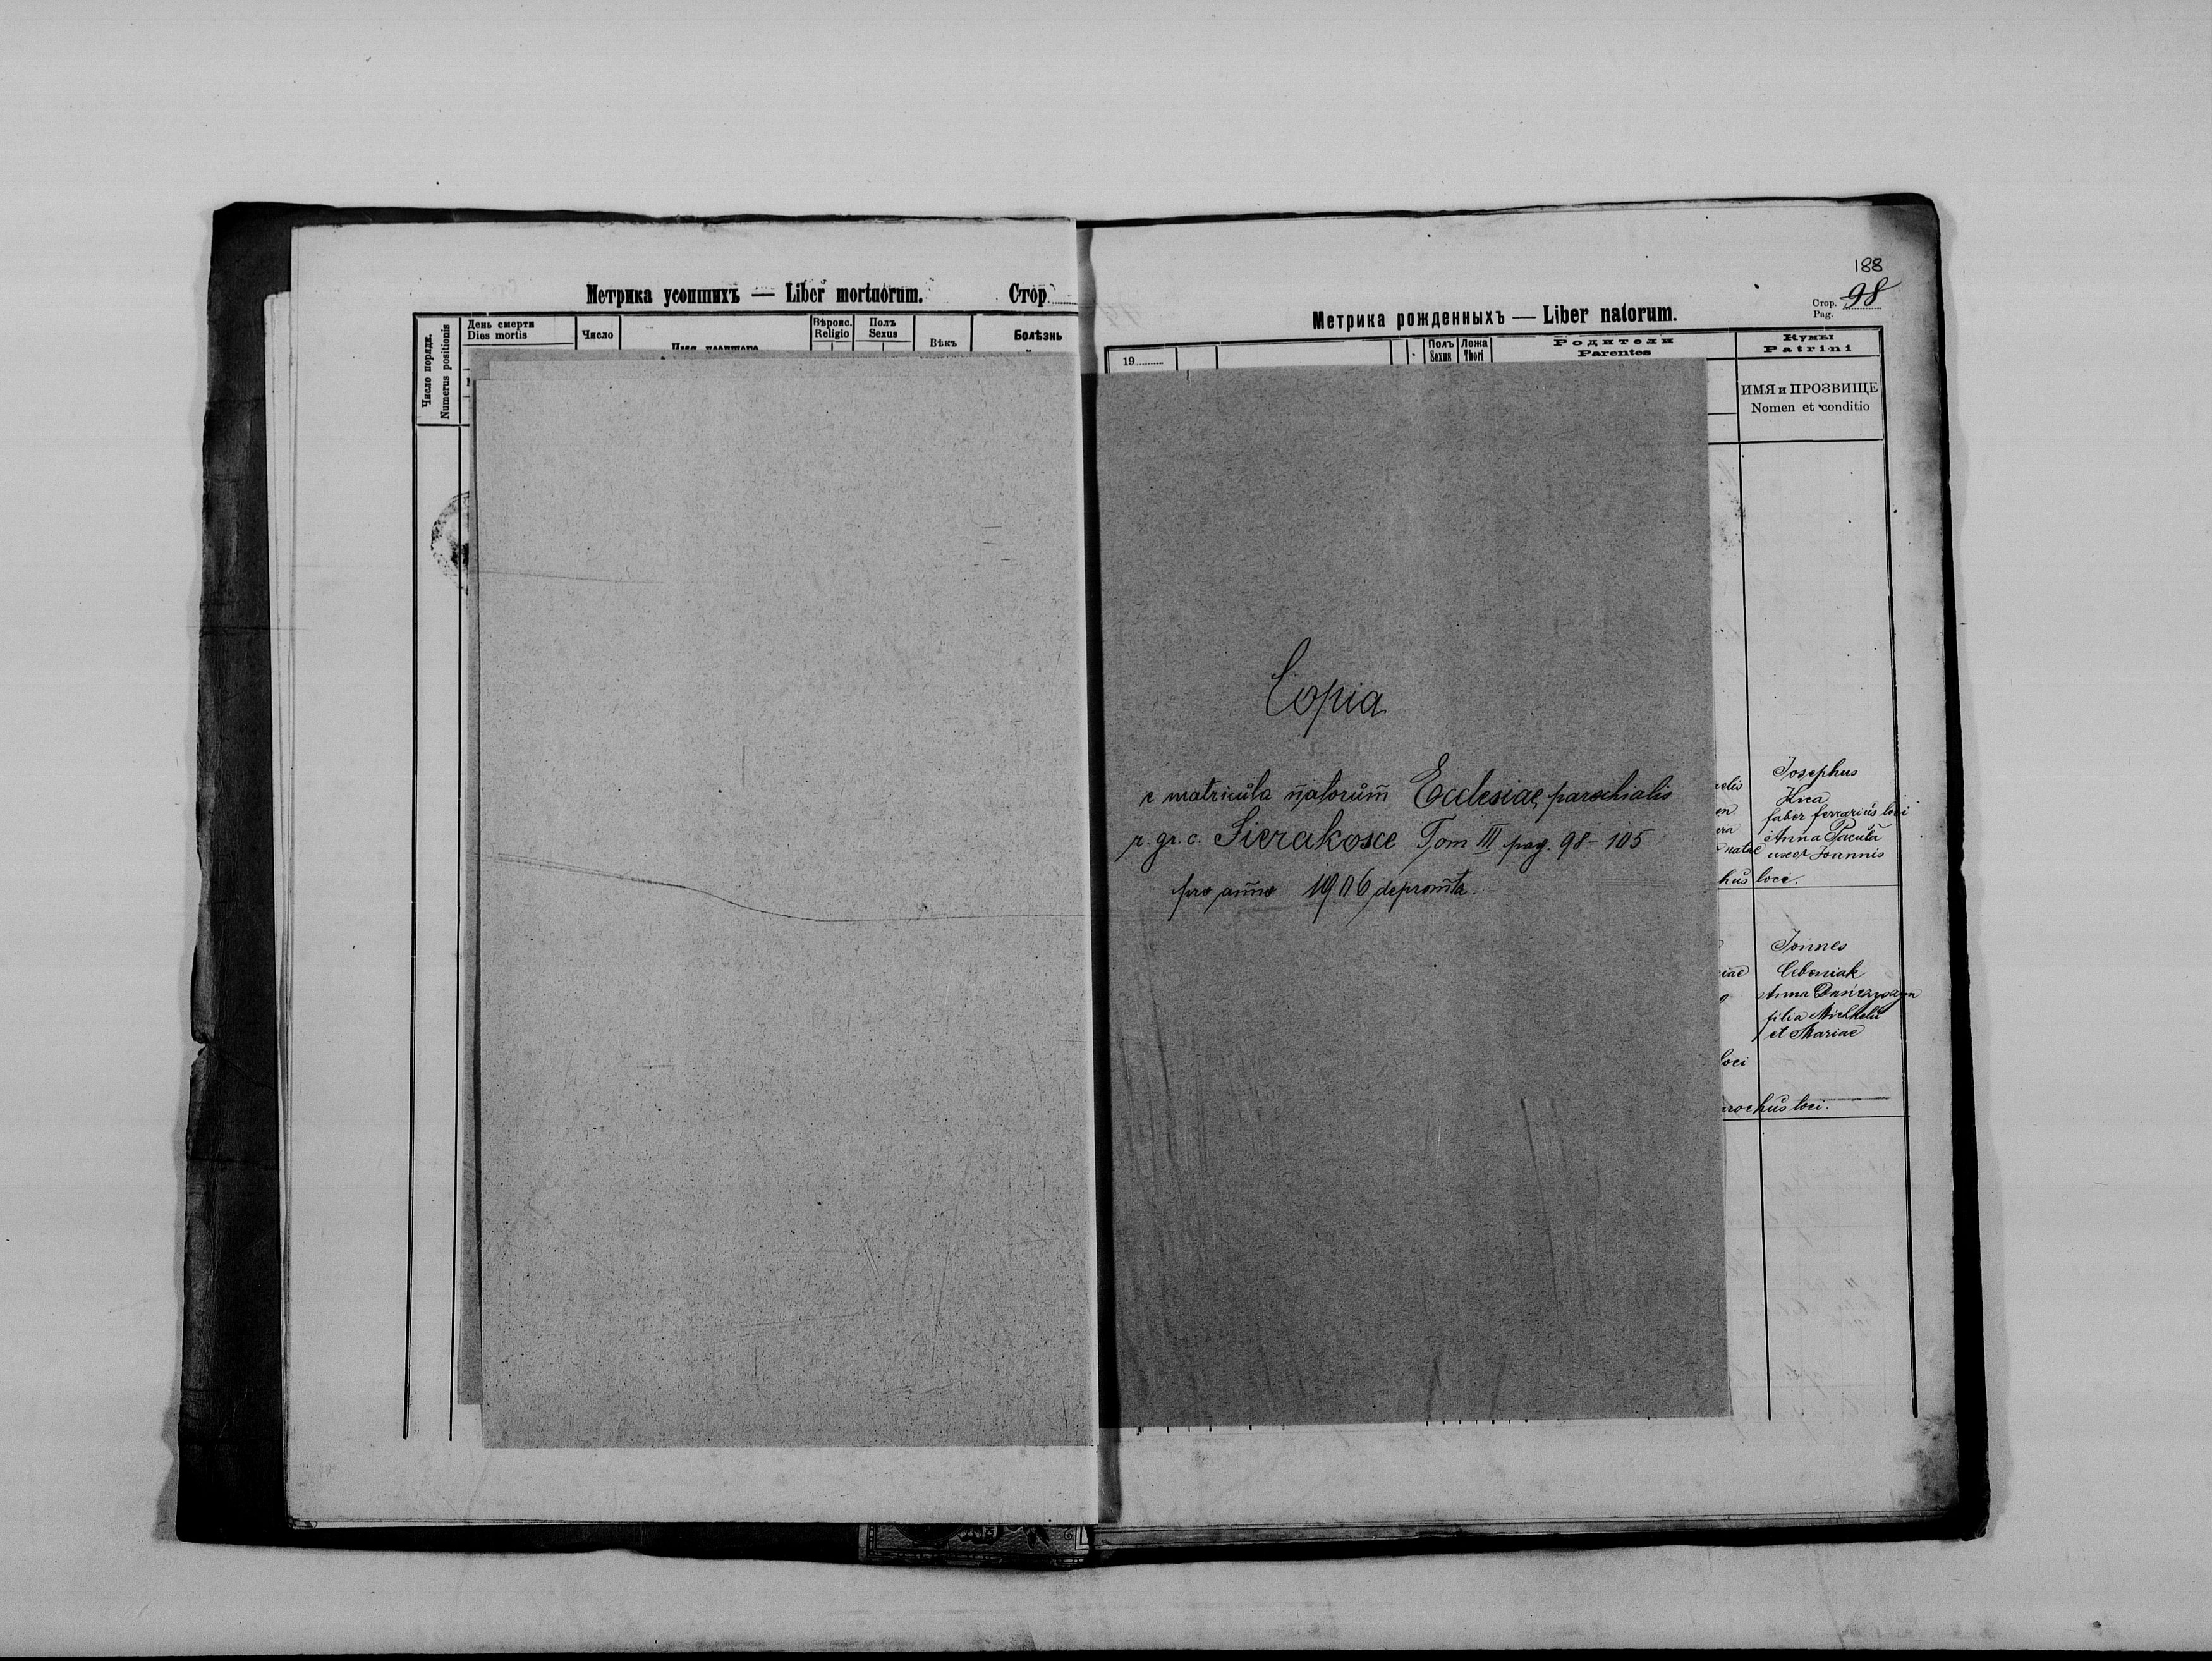 Метрика усопшихъ — Liber mortuorum. Стор
Число порядк.
Numerus positionis
День смерти
Dies mortis
Число
Вѣроис.
Religio
Полъ
Sexus
Вѣкъ
Болѣзнь
188
Стор. 98
Pag.
Метрика рожденныхъ — Liber natorum.
19
Полъ
Sexus
Ложа
Thori
Родители
Parentes
Кумы
Patrini
ИМЯ и ПРОЗВИЩЕ
Nomen et conditio
Copia
e matricula natorum Ecclesiae parochialis
r. gr. c. Sierakosce Tom III pag. 98 - 105
pro anno 1906 depromta.
Josephus
Kica
faber ferrarius loci
Anna Pacuła
uxor Joannis
loci.
Jonnes
Cebeniak
Anna
filia Michaelis
et Mariae
loci
rochus loci.